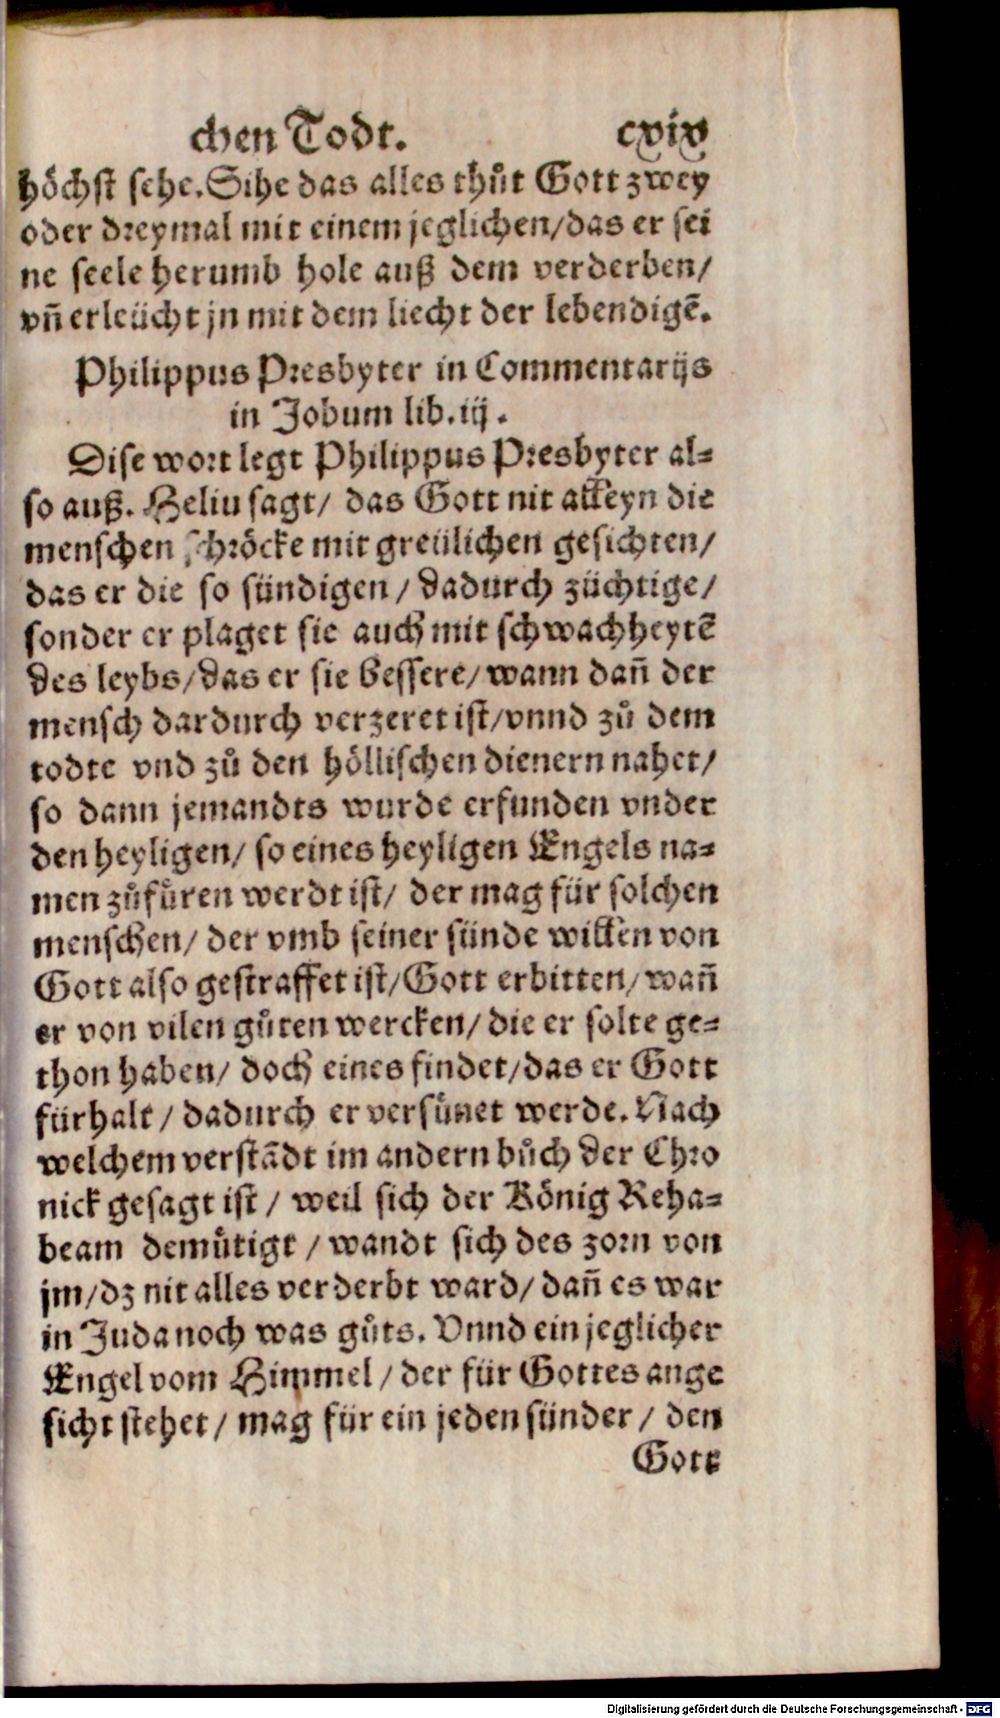 chen Todt. cxix
höchst sehe. Sihe das alles thůt Gott zwey
oder dreymal mit einem jeglichen/ das er sei
ne seele herumb hole auß dem verderben/
vñ erleücht jn mit dem liecht der lebendigē.
Philippus Presbyter in Commentarijs
in Jobum lib. iij.
Dise wort legt Philippus Presbyter al-
so auß. Heliu sagt/ das Gott nit alleyn die
menschen schröcke mit greülichen gesichten/
das er die so sündigen/ dadurch züchtige/
sonder er plaget sie auch mit schwachheytē
des leybs/ das er sie bessere/ wann dañ der
mensch dardurch verzeret ist/ vnnd zů dem
todte vnd zů den höllischen dienern nahet/
so dann jemandts wurde erfunden vnder
den heyligen/ so eines heyligen Engels na-
men zůfůren werdt ist/ der mag für solchen
menschen/ der vmb seiner sünde willen von
Gott also gestraffet ist/ Gott erbitten/ wañ
er von vilen gůten wercken/ die er solte ge-
thon haben/ doch eines findet/ das er Gott
fürhalt/ dadurch er versünet werde. Nach
welchem verstādt im andern bůch der Chro
nick gesagt ist/ weil sich der König Reha-
beam demůtigt/ wandt sich des zorn von
jm/ dz nit alles verderbt ward/ dañ es war
in Juda noch was gůts. Vnnd ein jeglicher
Engel vom Himmel/ der für Gottes ange
sicht stehet/ mag für ein jeden sünder/ den
Gott
Digitalisierung gefördert durch die Deutsche Forschungsgemeinschaft - DFG